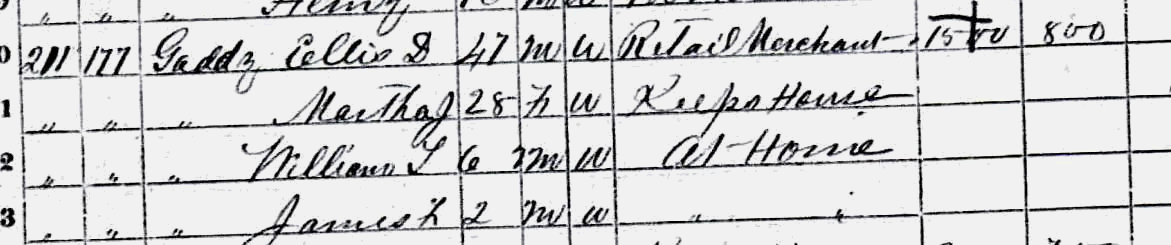 " " " Henry
0 211 177 Gaddy Ellis D 47 M W Retail Merchant 1500 800
1 " " " Martha J 28 F W Keeps Home
2 " " " William T 6 M W At Home
3 " " " James F 2 M W " "